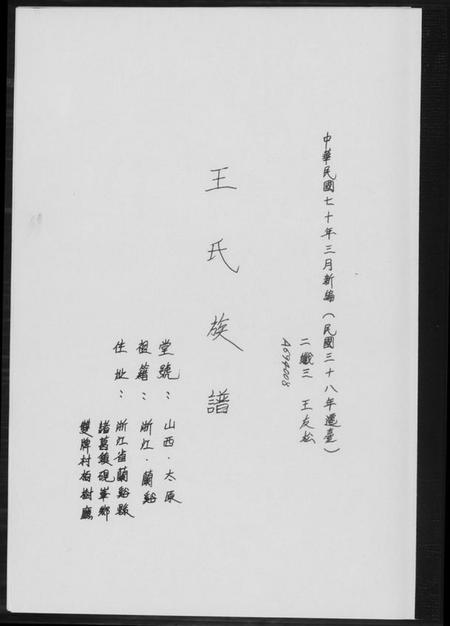 中華民國七十年三月新編(民國三十八年遷臺)
二繼三 王友松
A694008
王氏族譜
堂號：山西·太原
祖籍：浙江·蘭谿
住址：浙江省蘭谿縣
諸葛鎮硯峯鄉
雙牌村柏樹廳